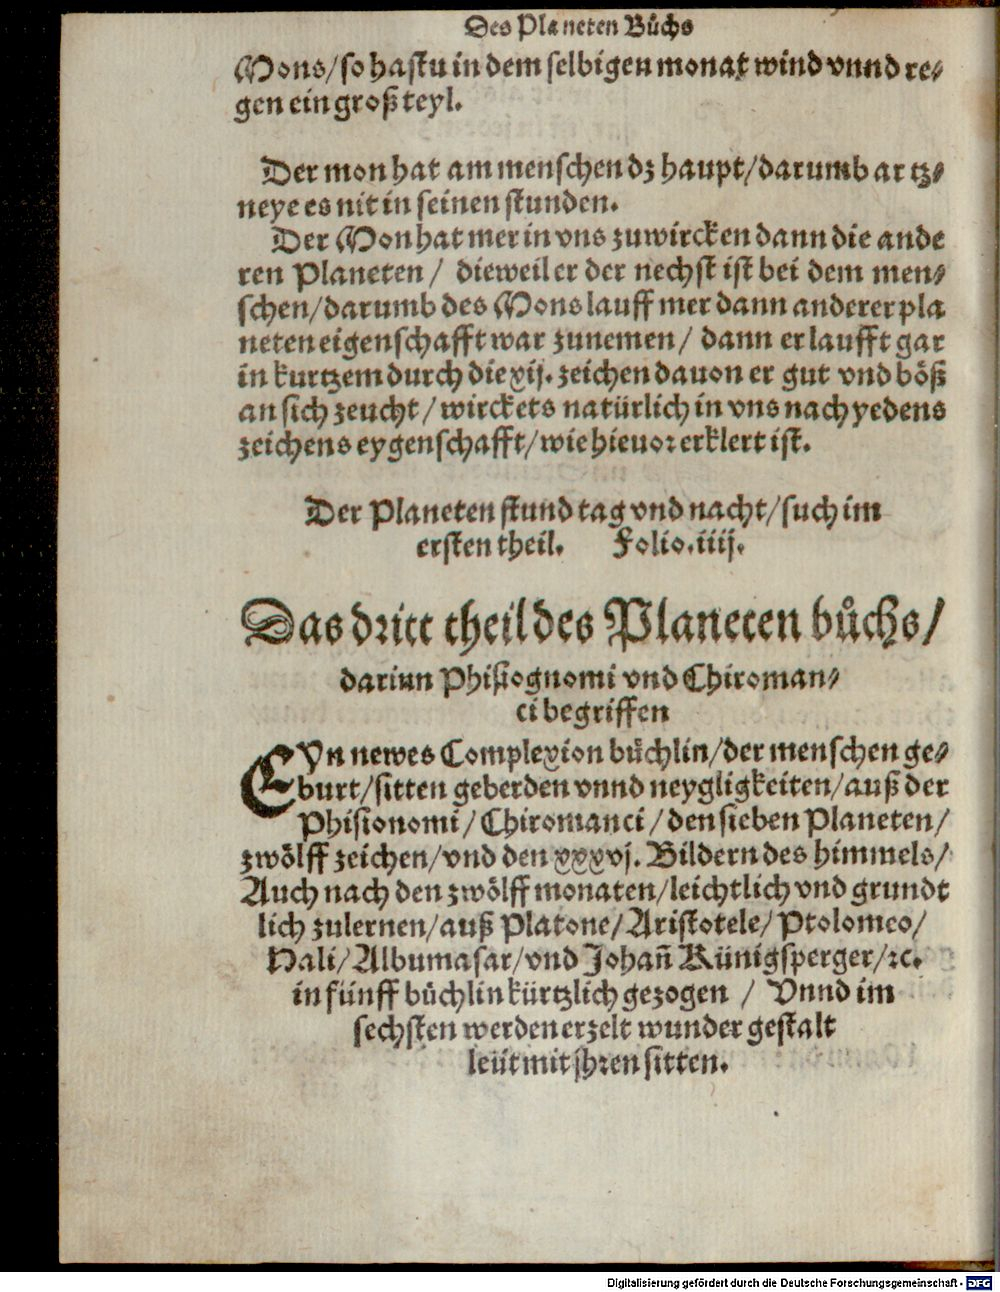 Des Planeten Bůchs
Mons/so hastu in dem selbigen monat wind vnnd re⸗
gen ein groß teyl.
Der mon hat am menschen dz haupt/darumb artz⸗
neye es nit in seinen stunden.
Der Mon hat mer in vns zuwircken dann die ande
ren Planeten/ dieweil er der nechst ist bei dem men⸗
schen/darumb des Mons lauff mer dann anderer pla
neten eigenschafft war zunemen/ dann er laufft gar
in kurtzem durch die xij. zeichen dauon er gut vnd böß
an sich zeucht/wirckets natürlich in vns nach yedens
zeichens eygenschafft/wie hieuor erklert ist.
Der Planeten stund tag vnd nacht/such im
ersten theil. Folio.iiij.
Das dritt theil des Planeten bůchs/
dariun Phisiognomi vnd Chiroman⸗
ci begriffen
EYn newes Complexion bůchlin/der menschen ge⸗
burt/sitten geberden vnnd neygligkeiten/auß der
Phisionomi/Chiromanci/den sieben Planeten/
zwölff zeichen/vnd den xxxvj. Bildern des himmels/
Auch nach den zwölff monaten/leichtlich vnd grundt
lich zulernen/auß Platone/Aristotele/Ptolomeo/
Hali/Albumasar/vnd Johañ Künigsperger/ꝛc.
in fünff bůchlin kürtzlich gezogen / Vnnd im
sechsten werden erzelt wunder gestalt
leüt mit jhren sitten.
Digitalisierung gefördert durch die Deutsche Forschungsgemeinschaft - DFG